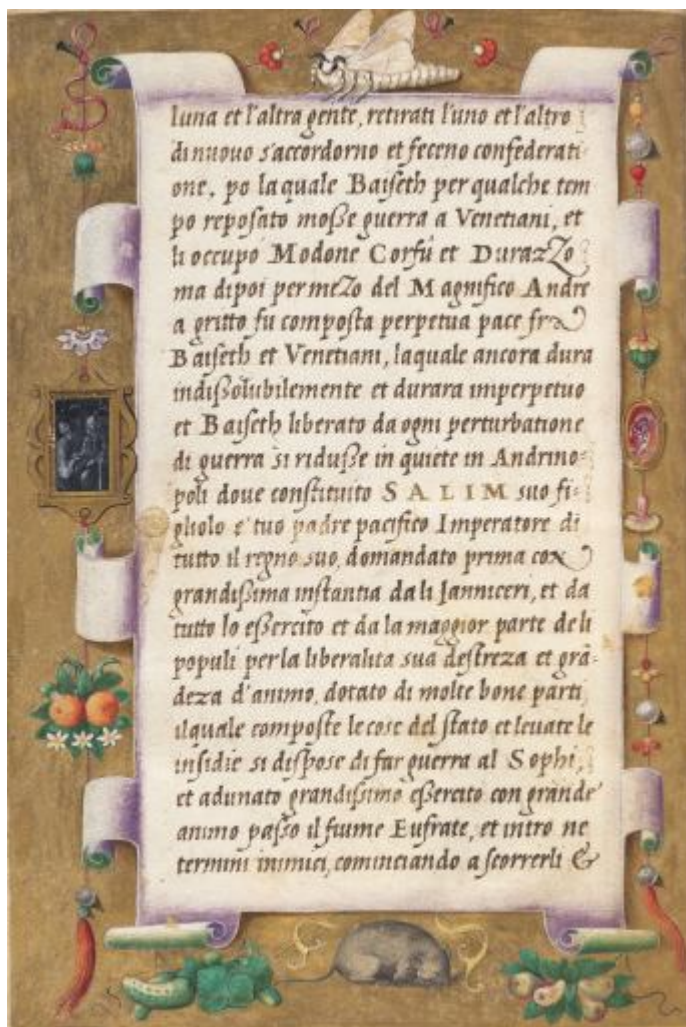 luna et l'altra gente, retirati l'uno et l'altro
di nuouo s'accordorno et feceno confederati-
one, po laquale Baiseth per qualche tem
po reposato moße guerra a Venetiani, et
li occupò Modone Corfù et Durazzo
ma dipoi per mezo del Magnifico Andre
a gritto fu composta perpetua pace fra
Baiseth et Venetiani, laquale ancora dura
indißolubilemente et durara imperpetuo
et Baiseth liberato da ogni perturbatione
di guerra si riduße in quiete in Andrino-
poli doue constituito SALIM suo fi-
gliolo e' tuo padre pacifico Imperatore di
tutto il regno suo, domandato prima con
grandißima instantia da li Janniceri, et da
tutto lo eßercito et da la maggior parte deli
populi per la liberalita sua destreza et grā-
deza d'animo, dotato di molte bone parti,
ilquale composte le cose del stato et leuate le
insidie si dispose di far guerra al Sophi,
et adunato grandißimo eßercito con grande
animo paßo il fiume Eufrate, et intro ne
termini inimici, cominciando a scorrerli &